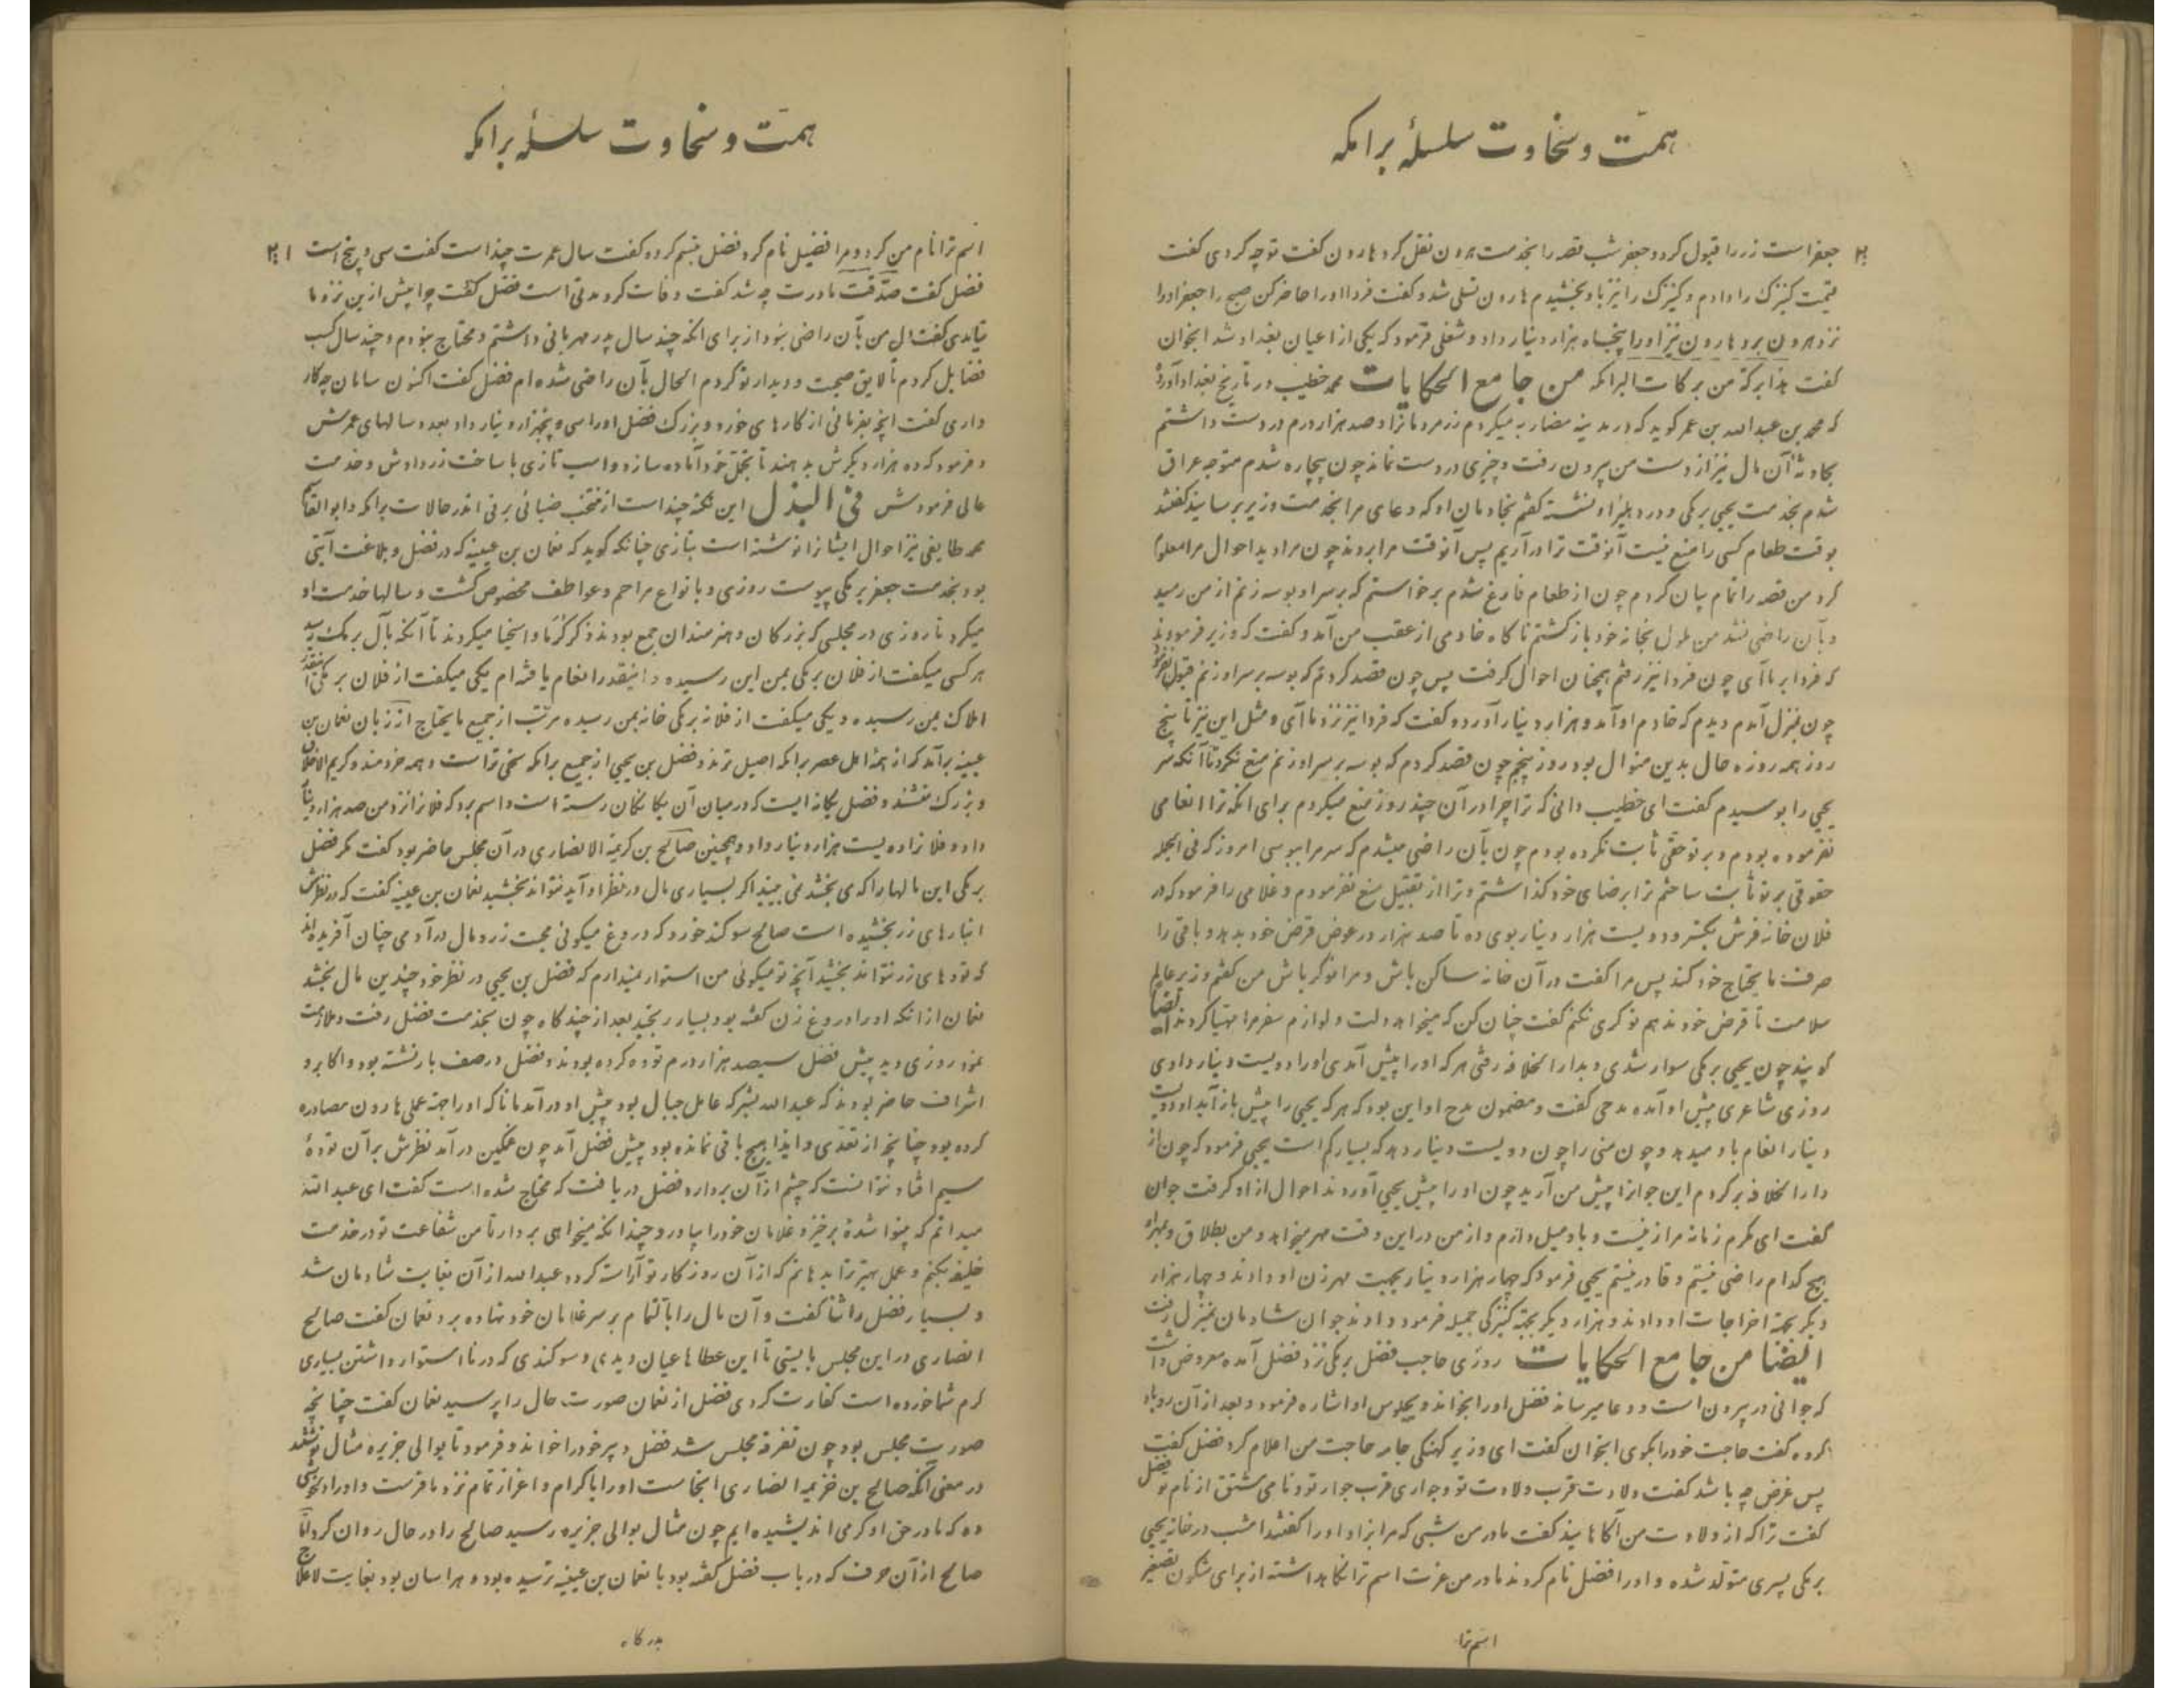 همّت و سخاوت سلسلهٔ برامکه
جعفر است زر را قبول کرد و جعفر شب قصه را بخدمت هرون نقل کرد هارون گفت تو چه کردی گفت
قیمت کنیزک را دادم و کنیزک را نیز باو بخشیدم هارون تسلی شد و گفت فردا او را حاضر کن صبح را جعفر او را
نزد هرون برد هارون نیز او را پنجاه هزار دینار داد و شغلی فرمود که یکی از اعیان بغداد شد اینخوان
گفت هذا برکة من برکات البرامکه من جامع الحکایات محمد خطیب در تاریخ بغداد آورده
که محمد بن عبدالله بن عمر گوید که در مدینه مضاربه میکردم زر مردمانرا و صد هزار درم در دست داشتم
بحادثه آن مال نیز از دست من بیرون رفت و چیزی در دست نماند چون بیچاره شدم متوجه عراق
شدم بخدمت یحیی برمکی و در دهلیز او نشسته گفتم بخادمان او که دعای مرا بخدمت وزیر برسانید گفتند
بوقت طعام کسی را منع نیست آنوقت ترا درآریم پس آنوقت مرا بردند چون مرا دید احوال مرا معلوم
کرد من قصه را تمام بیان کردم چون از طعام فارغ شدم برخواستم که بر سر او بوسه زنم از من رمید
و بآن راضی نشد من ملول بخانه خود بازگشتم ناگاه خادمی از عقب من آمد و گفت که وزیر فرمودند
که فردا بر ما آی چون فردا نیز رفتم همچنان احوال گرفت پس چون قصد کردم که بوسه بر سر او زنم قبول نفرمود
چون بمنزل آمدم دیدم که خادم او آمد و هزار دینار آورد و گفت که فردا نیز نزد ما آی و مثل این نیز تا پنج
روز همه روزه حال بدین منوال بود روز پنجم چون قصد کردم که بوسه بر سر او زنم منع نکرد تا آنکه سر
یحیی را بوسیدم گفت ای خطیب دانی که ترا چرا در آن چند روز منع میکردم برای آنکه ترا انعامی
نفرموده بودم و بر تو حقی ثابت نکرده بودم چون بآن راضی میشدم که سر مرا ببوسی امروز که فی الجمله
حقوقی بر تو ثابت ساختم ترا برضای خود گذاشتم و ترا از تقبیل منع نفرمودم و غلامی را فرمود که در
فلان خانه فرش بگسترد و دویست هزار دینار بوی ده تا صد هزار در عوض قرض خود بدهد و باقی را
صرف مایحتاج خود کند پس مرا گفت در آن خانه ساکن باش و مرا نوکر باش من گفتم وزیر عالم
سلامت تا قرض خود ندهم نوکری نکنم گفت چنان کن که میخواهد دلت و لوازم سفر مرا مهیا کردند ایضا
گویند چون یحیی برمکی سوار شدی و بدار الخلافه رفتی هر که او را پیش آمدی او را دویست دینار دادی
روزی شاعری پیش او آمده مدحی گفت و مضمون مدح او این بود که هر که یحیی را پیش باز آید او دویست
دینار انعام باو میدهد و چون منی را چون دویست دینار دهد که بسیار کم است یحیی فرمود که چون از
دارالخلافه برگردم این جوانرا پیش من آرید چون او را پیش یحیی آوردند احوال از او گرفت جوان
گفت ای مکرم زمانه مرا زنیست و باو میل دارم و از من در این وقت مهر میخواهد و من بطلاق و بمهر او
هیچ کدام راضی نیستم و قادر نیستم یحیی فرمود که چهار هزار دینار بجهت مهر زن او دادند و چهار هزار
دیگر بجهة اخراجات او دادند و هزار دیگر بجهة کنیزکی جمیله فرمود دادند جوان شادمان بمنزل رفت
ایضا من جامع الحکایات روزی حاجب فضل برمکی نزد فضل آمده معروض داشت
که جوانی در بیرون است و دعا میرساند فضل او را بخواند و بجلوس او اشاره فرمود و بعد از آن رو باو
کرده گفت حاجت خود را بگوی اینخوان گفت ای وزیر کهنگی جامه حاجت من اعلام کرد فضل گفت
پس غرض چه باشد گفت ولادت قرب ولادت تو و جواری قرب جوار تو و نامی مشتق از نام تو فضل
گفت ترا که از ولادت من آگاهانید گفت مادر من شبی که مرا بزاد او را گفتند امشب در خانه یحیی
برمکی پسری متولد شده و او را فضل نام کردند مادر من عزت اسم ترا نگاهداشته از برای شگون تصغیر
اسم ترا
همّت و سخاوت سلسلهٔ برامکه
اسم ترا نام من کرد و مرا فضیل نام کرد فضل تبسم کرده گفت سال عمرت چند است گفت سی و پنج است
فضل گفت صدقت مادرت چه شد گفت وفات کرد مدتی است فضل گفت چرا پیش از این نزد ما
نیامدی گفت دل من بآن راضی نبود از برای آنکه چند سال پدر مهربانی داشتم و محتاج نبودم و چند سال کسب
فضایل کردم تا لایق صحبت و دیدار تو گردم الحال بآن راضی شده ام فضل گفت اکنون سامان چه کار
داری گفت آنچه بفرمائی از کارهای خورد و بزرگ فضل او را سی و پنجهزار دینار داد بعدد سالهای عمرش
و فرمود که ده هزار دیگرش بدهند تا تجمّل خود آماده سازد و اسب تازی با ساخت زر دادش و خدمت
عالی فرمودش فی البذل این نکته چند است از منتخب ضیائی برنی اندر حالات برامکه و ابوالقاسم
محمد طایفی نیز احوال ایشانرا نوشته است بتازی چنانکه گوید که نعمان بن عیینه که در فضل و بلاغت آیتی
بود بخدمت جعفر برمکی پیوست روزی و بانواع مراحم و عواطف مخصوص گشت و سالها خدمت او
میکرد تا روزی در مجلسی که بزرگان و هنرمندان جمع بودند ذکر کرما و اسخیا میکردند تا آنکه بآل برمک رسید
هر کسی میگفت از فلان برمکی بمن این رسیده و اینقدر انعام یافته ام یکی میگفت از فلان برمکی اینقدر
املاک بمن رسیده و یکی میگفت از فلانه برمکی خانه بمن رسیده مرتب از جمیع مایحتاج از زبان نعمان بن
عیینه برآمد که از همه اهل عصر برامکه اصیل ترند و فضل بن یحیی از جمیع برامکه سخی تر است و همه خردمند و کریم الاخلاق
و بزرگ منشند و فضل یگانه ایست که در میان آن یگانگان رسته است و اسم برد که فلانرا نزد من صد هزار دینار
داد و فلانرا ده بیست هزار دینار داد و همچنین صالح بن کریمة الانصاری در آن مجلس حاضر بود گفت مگر فضل
برمکی این مالها را که می بخشد نمی بیند اگر بسیاری مال در نظر او آید نتواند بخشید نعمان بن عیینه گفت که در نظرش
انبارهای زر بخشیده است صالح سوگند خورد که دروغ میگوئی محبت زر و مال در آدمی چنان آفریده اند
که تودهای زر نتواند بخشید آنچه تو میگوئی من استوار نمیدارم که فضل بن یحیی در نظر خود چندین مال بخشد
نعمان از آنکه او را دروغ زن گفته بود بسیار رنجید بعد از چند گاه چون بخدمت فضل رفت و ملازمت
نمود روزی دید پیش فضل سیصد هزار درم توده کرده بودند و فضل در صف بار نشسته بود و اکابر و
اشراف حاضر بودند که عبدالله بشر که عامل جبال بود پیش او درآمد مانا که او را جهة عملی هارون مصادره
کرده بود چنانچه از نقدی و ایذا هیچ باقی نمانده بود پیش فضل آمد چون غمگین در آمد نظرش بر آن تودهٔ
سیم افتاد نتوانست که چشم از آن بردارد فضل دریافت که محتاج شده است گفت ای عبدالله
میدانم که بینوا شدهٔ برخیز و غلامان خود را بیاور و چندانکه میخواهی بردار تا من شفاعت تو در خدمت
خلیفه بکنم و عمل بهتر ترا بدهانم که از آن روزگار تو آراسته گردد عبدالله از آن بغایت شادمان شد
و بسیار فضل را ثنا گفت و آن مال را بالتمام بر سر غلامان خود نهاده برد نعمان گفت صالح
انصاری در این مجلس بایستی تا این عطاها عیان دیدی و سوگندی که در نا استوار داشتن بسیاری
کرم شما خورده است کفارت کردی فضل از نعمان صورت حال را پرسید نعمان گفت چنانچه
صورت مجلس بود چون تفرقه مجلس شد فضل دبیر خود را خواند و فرمود تا بوالی جزیره مثال نوشتند
در معنی آنکه صالح بن خزیمه انصاری آنجا است او را با کرام و اعزاز تمام نزد ما فرست و او را دلخوشی
ده که ما در حق او کرمی اندیشیده ایم چون مثال بوالی جزیره رسید صالح را در حال روان کرد امّا
صالح از آن حرف که در باب فضل گفته بود با نعمان بن عیینه ترسیده بود و هراسان بود بغایت لاعلاج
بدرگاه